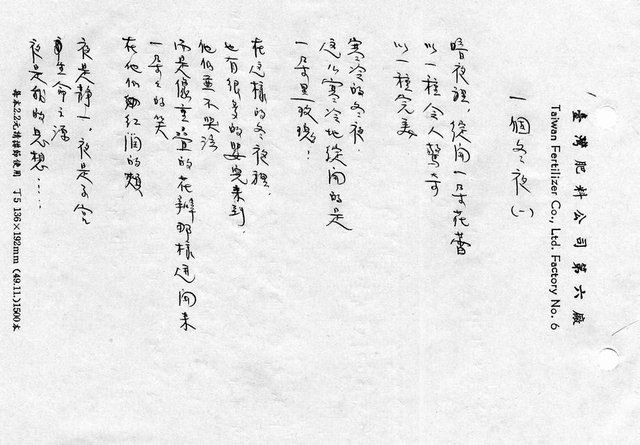 臺灣肥料公司第六廠
Taiwan Fertilizer Co., Ltd. Factory No. 6
一個冬夜(一)
暗夜裡,綻開一朵花蕾
以一種令人驚奇
以一種完美
寒冷的冬夜.
這以寒冷地綻開的是
一朵黑玫瑰!
在這樣的冬夜裡.
也有很多的嬰兒來到.
他們並不哭泣
而是像重疊的花瓣那樣展開來
一朵朵的笑
在他們紅潤的頰
夜是靜一,夜是子宮
生命之源
夜是我的思想……
每本2.2元請撙節使用 丁5 136×192mm (49.11.)1500本